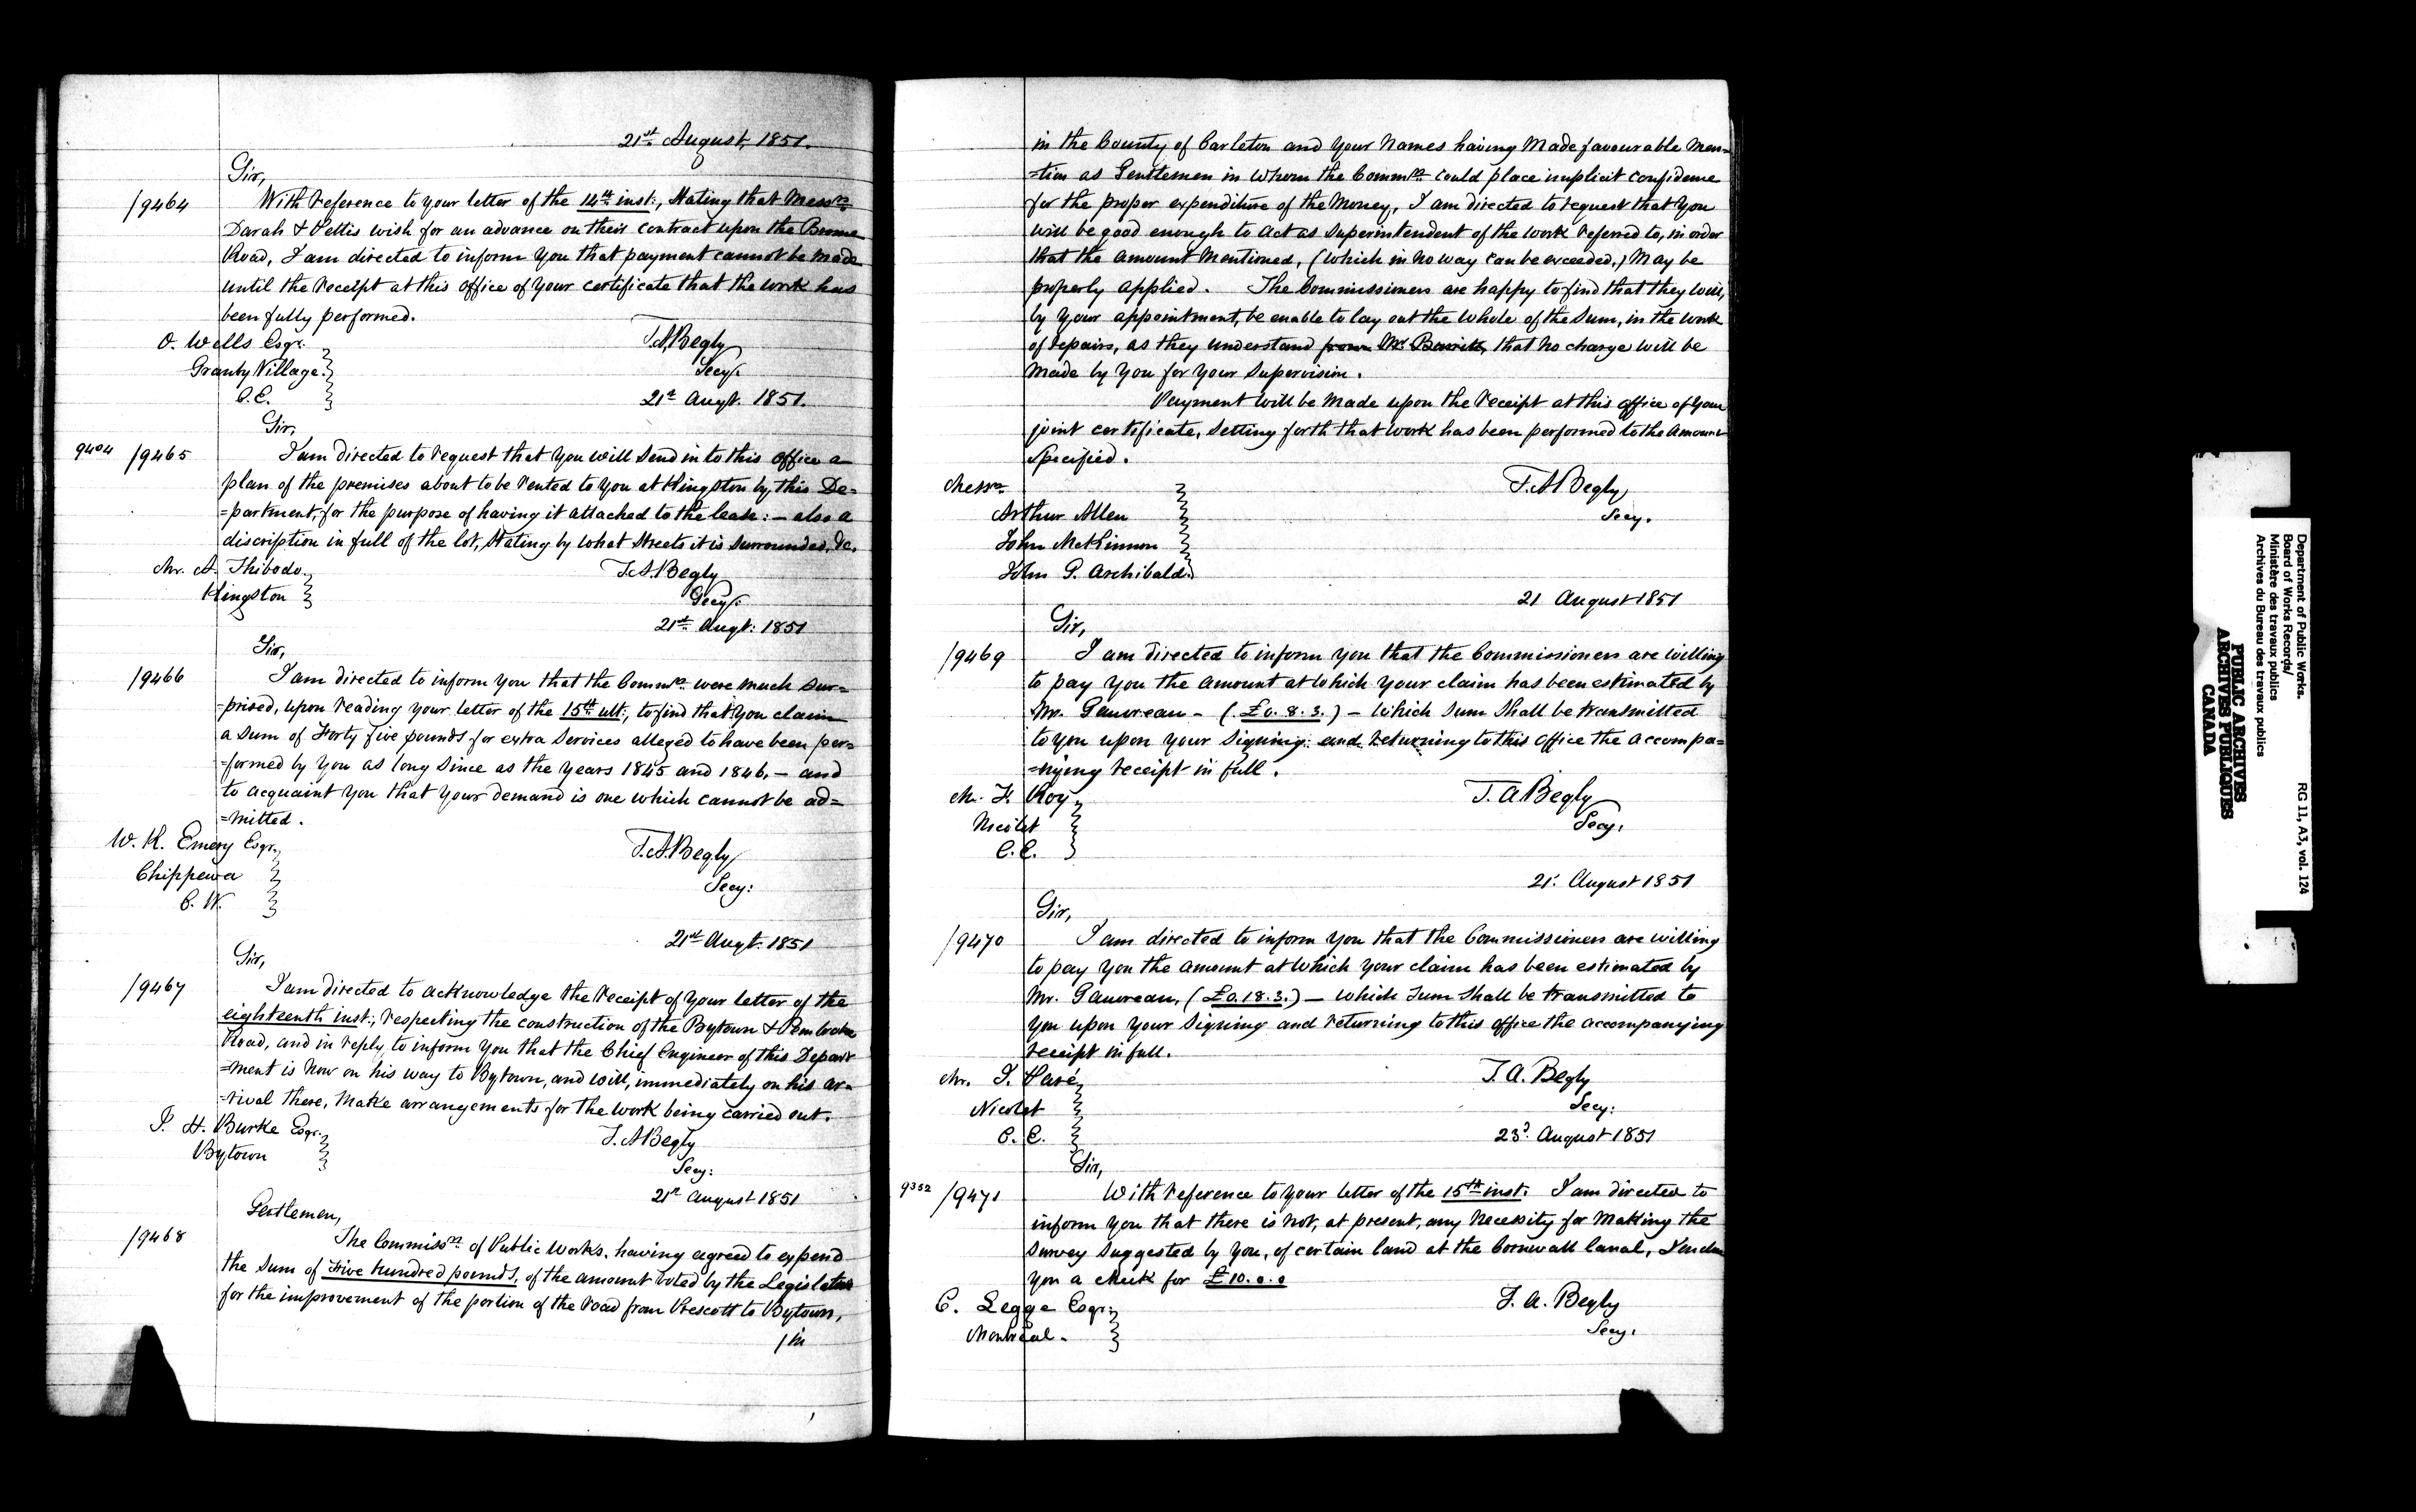 21st August, 1851.
Sir,
/9464 With reference to your letter of the 14th inst:, stating that Messrs
Darah & Pettis wish for an advance on their contract upon the
Road, I am directed to inform you that payment cannot be made
until the receipt at this office of your certificate that the work has
been fully performed.
O. Wells Esqr. T.A. Begly
Granby Village. Secy:
C.E. 21st Augt. 1851.
Sir,
9404 /9465 I am directed to request that you will send in to this office a
plan of the premises about to be rented to you at Kingston by this De=
=partment, for the purpose of having it attached to the lease: – also a
discription in full of the lot, stating by what streets it is surrounded, &c.
Mr. A. Thibodo. T.A. Begly
Kingston Secy:
21st Augt: 1851
Sir,
/9466 I am directed to inform you that the Commrs were much sur=
=prised, upon reading your letter of the 15th ult:, to find that you claim
a sum of Forty five pounds for extra services alleged to have been per=
=formed by you as long since as the years 1845 and 1846, – and
to acquaint you that your demand is one which cannot be ad=
=mitted.
W. K. Emery Esqr. T.A. Begly
Chippewa Secy:
C. W.
21st Augt. 1851
Sir,
/9467 I am directed to acknowledge the receipt of your letter of the
eighteenth inst:, respecting the construction of the Bytown & Pembroke
Road, and in reply, to inform you that the Chief Engineer of this Depart
=ment is now on his way to Bytown, and will, immediately on his ar=
=rival there, make arrangements for the work being carried out.
J. H. Burke Esqr. T. A Begly
Bytown Secy:
21st August 1851
Gentlemen,
/9468 The Commissrs of Public Works, having agreed to expend
the sum of Five hundred pounds, of the amount voted by the Legislature
for the improvement of the portion of the road from Prescott to Bytown,
/in
in the County of Carleton and your names having made favourable men=
=tion as Gentlemen in whom the Commrs could place implicit confidence
for the proper expenditure of the money, I am directed to request that you
will be good enough to act as Superintendent of the work referred to, in order
that the amount mentioned, (which in no way can be exceeded,) may be
properly applied. The Commissioners are happy to find that they will,
by your appointment, be enable to lay out the whole of the sum, in the work
of repairs, as they understand from Mr that no charge will be
made by you for your supervision.
Payment will be made upon the receipt at this office of your
joint certificate, setting forth that work has been performed to the amount
specified.
Messrs T. A Begly
Arthur Allen Secy.
John McKinnon
John P. Archibald.
21 August 1851
Sir,
/9469 I am directed to inform you that the Commissioners are willing
to pay you the amount at which your claim has been estimated by
Mr. Gauvreau – (£0. 8. 3.) – which sum shall be transmitted
to you upon your signing and returning to this office the accompa=
=nying receipt in full.
Mr. F. Roy T. A Begly
Nicolet Secy.
C. E.
21st August 1851
Sir,
/9470 I am directed to inform you that the Commissioners are willing
to pay you the amount at which your claim has been estimated by
Mr. Gauvreau, (£0.18.3.) – which sum shall be transmitted to
you upon your signing and returning to this office the accompanying
receipt in full.
Mr. J. Paré T. A. Begly
Nicolet Secy:
C. E. 23d August 1851
Sir,
9352 /9471 With reference to your letter of the 15th inst. I am directed to
inform you that there is not, at present, any necessity for making the
survey suggested by you, of certain land at the Cornwall Canal,
you a check for £10.0.0
C. Legge Esqr. T. A. Begly
Montreal. Secy.
Department of Public Works.
Board of Works Records/
Ministère des travaux publics
Archives du Bureau des travaux publics
RG 11, A3, vol. 124
PUBLIC ARCHIVES
ARCHIVES PUBLIQUES
CANADA